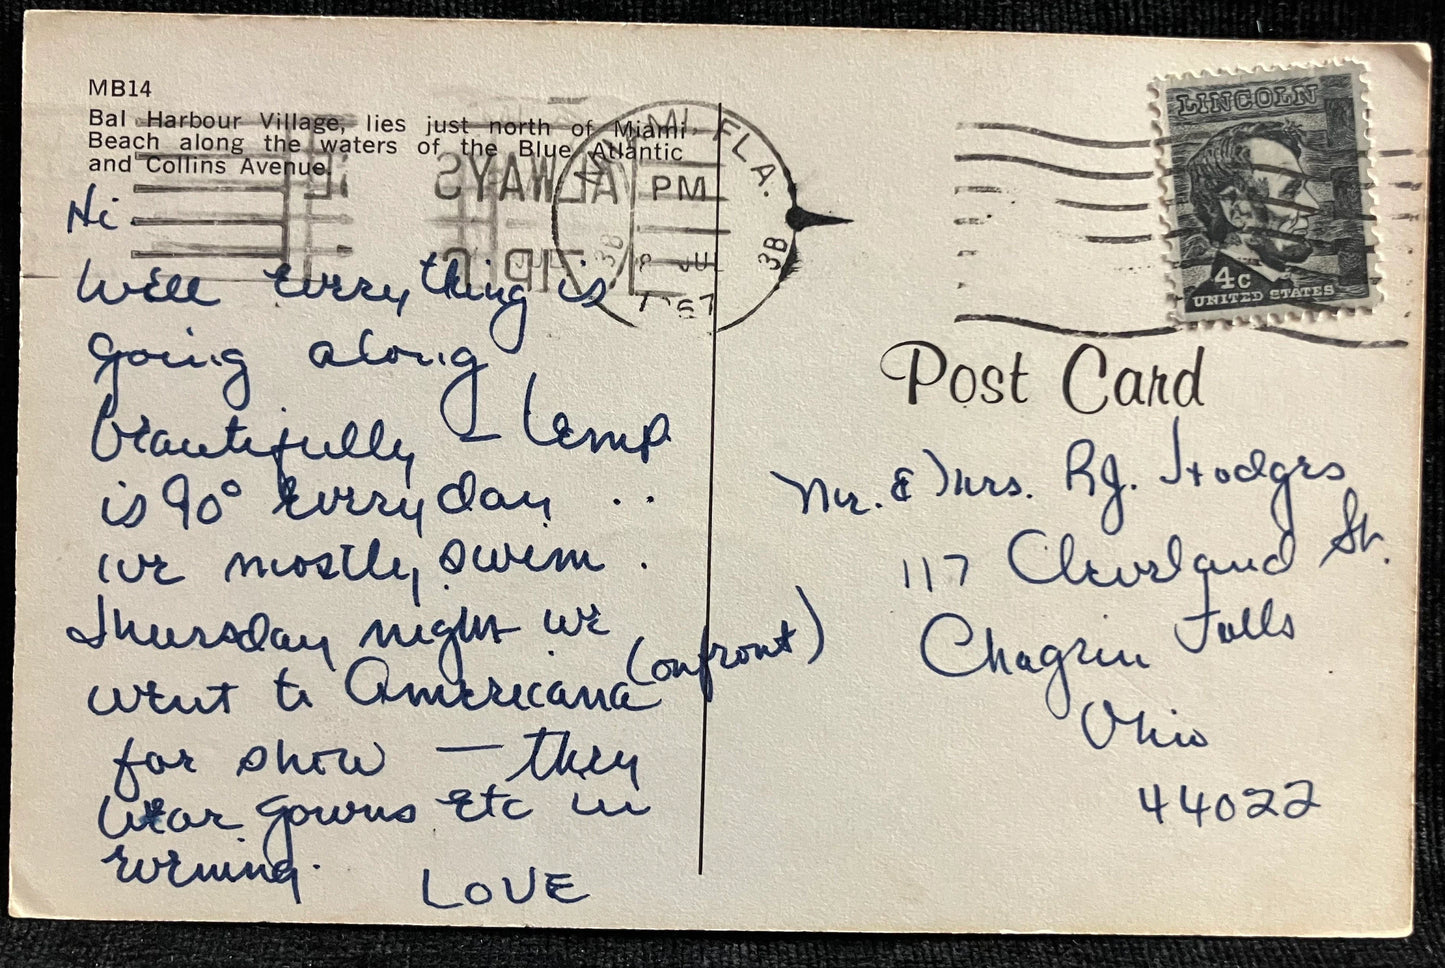 MB14
Bal Harbour Village, lies just north of Miami
Beach along the waters of the Blue Atlantic
and Collins Avenue.
MIAMI, FLA.
PM
JUL
1967
3B
3B
ALWAYS
ZIP
LINCOLN
4c
UNITED STATES
Post Card
Hi
Well everything is
going along
beautifully – temp
is 90° everyday ..
we mostly swim.
Thursday night we
went to Americana (on front)
for show — they
wear gowns etc in
evening.
LOVE
Mr. & Mrs. RJ. Hodges
117 Cleveland St.
Chagrin Falls
Ohio
44022